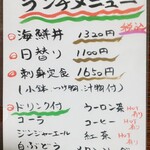 ランチメニュー
税込
海鮮丼 1320円
日替り 1100円
刺身定食 1650円
(小鉢・つけ物・汁物付)
ドリンク付
コーラ
ジンジャーエール
白ぶどう
ウーロン茶 Hot あり
コーヒー Hot あり
紅茶 Hot あり